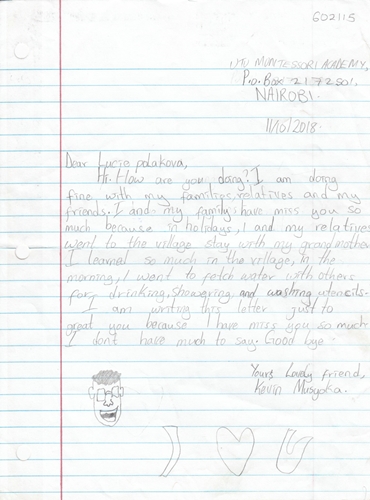 602115
UTU MONTESSORI ACADEMY,
P.o. Box
NAIROBI.
11/16/2018.
Dear Lucie polakova,
Hi. How are you doing? I am doing
fine with my families, relatives and my
friends. I and my family have miss you so
much because in holidays, I and my relatives
went to the village stay with my grandmother
I learnel so much in the village, In the
morning, I went to fetch water with others
for drinking, Showering and washing utencils.
I am writing this letter just to
great you because I have miss you so much.
I don't have much to say. Good bye.
Yours Lovely friend,
Kevin Musyoka.